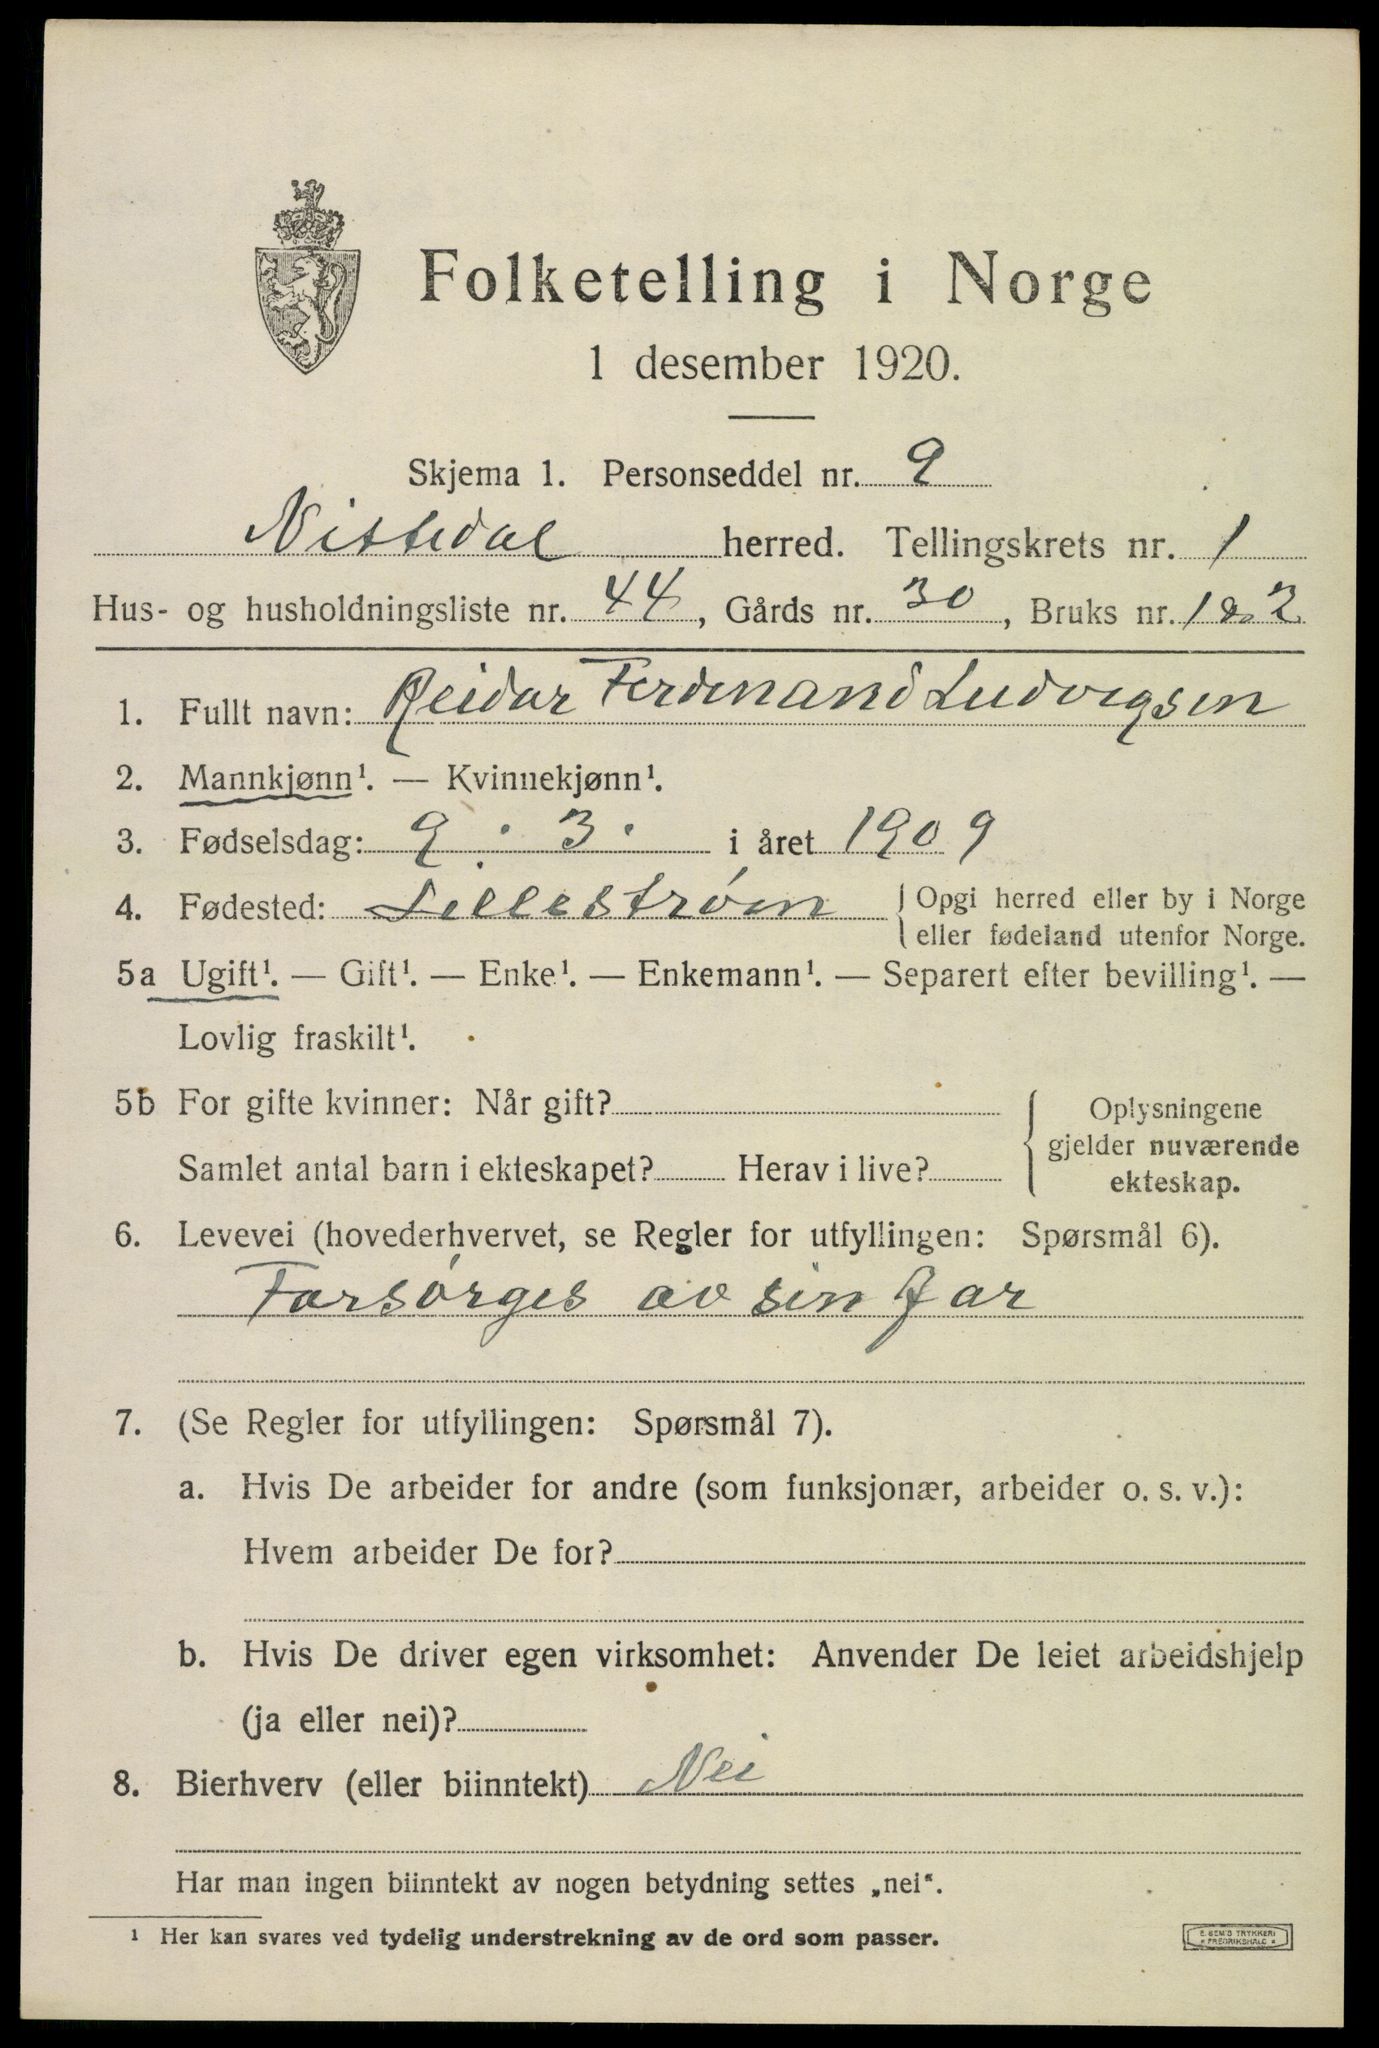 Folketelling i Norge
1 desember 1920.
Skjema 1. Personseddel nr. 9
Nittedal herred. Tellingskrets nr. 1
Hus- og husholdningsliste nr. 44, Gårds nr. 30, Bruks nr. 1 & 2
1. Fullt navn: Reidar Ferdinand Ludvigsen
2. Mannkjønn¹. — Kvinnekjønn¹.
3. Fødselsdag: 9. 3. i året 1909
4. Fødested: Lillestrøm { Opgi herred eller by i Norge
eller fødeland utenfor Norge.
5a Ugift¹. — Gift¹. — Enke¹. — Enkemann¹. — Separert efter bevilling¹. —
Lovlig fraskilt¹.
5b For gifte kvinner: Når gift?
Samlet antal barn i ekteskapet? Herav i live?
{ Oplysningene
gjelder nuværende
ekteskap.
6. Levevei (hovederhvervet, se Regler for utfyllingen: Spørsmål 6).
Forsørges av sin far
7. (Se Regler for utfyllingen: Spørsmål 7).
a. Hvis De arbeider for andre (som funksjonær, arbeider o. s. v.):
Hvem arbeider De for?
b. Hvis De driver egen virksomhet: Anvender De leiet arbeidshjelp
(ja eller nei)?
8. Bierhverv (eller biinntekt) Nei
Har man ingen biinntekt av nogen betydning settes „nei“.
¹ Her kan svares ved tydelig understrekning av de ord som passer.
E. SEM'S TRYKKERI
* FREDRIKSHALD *